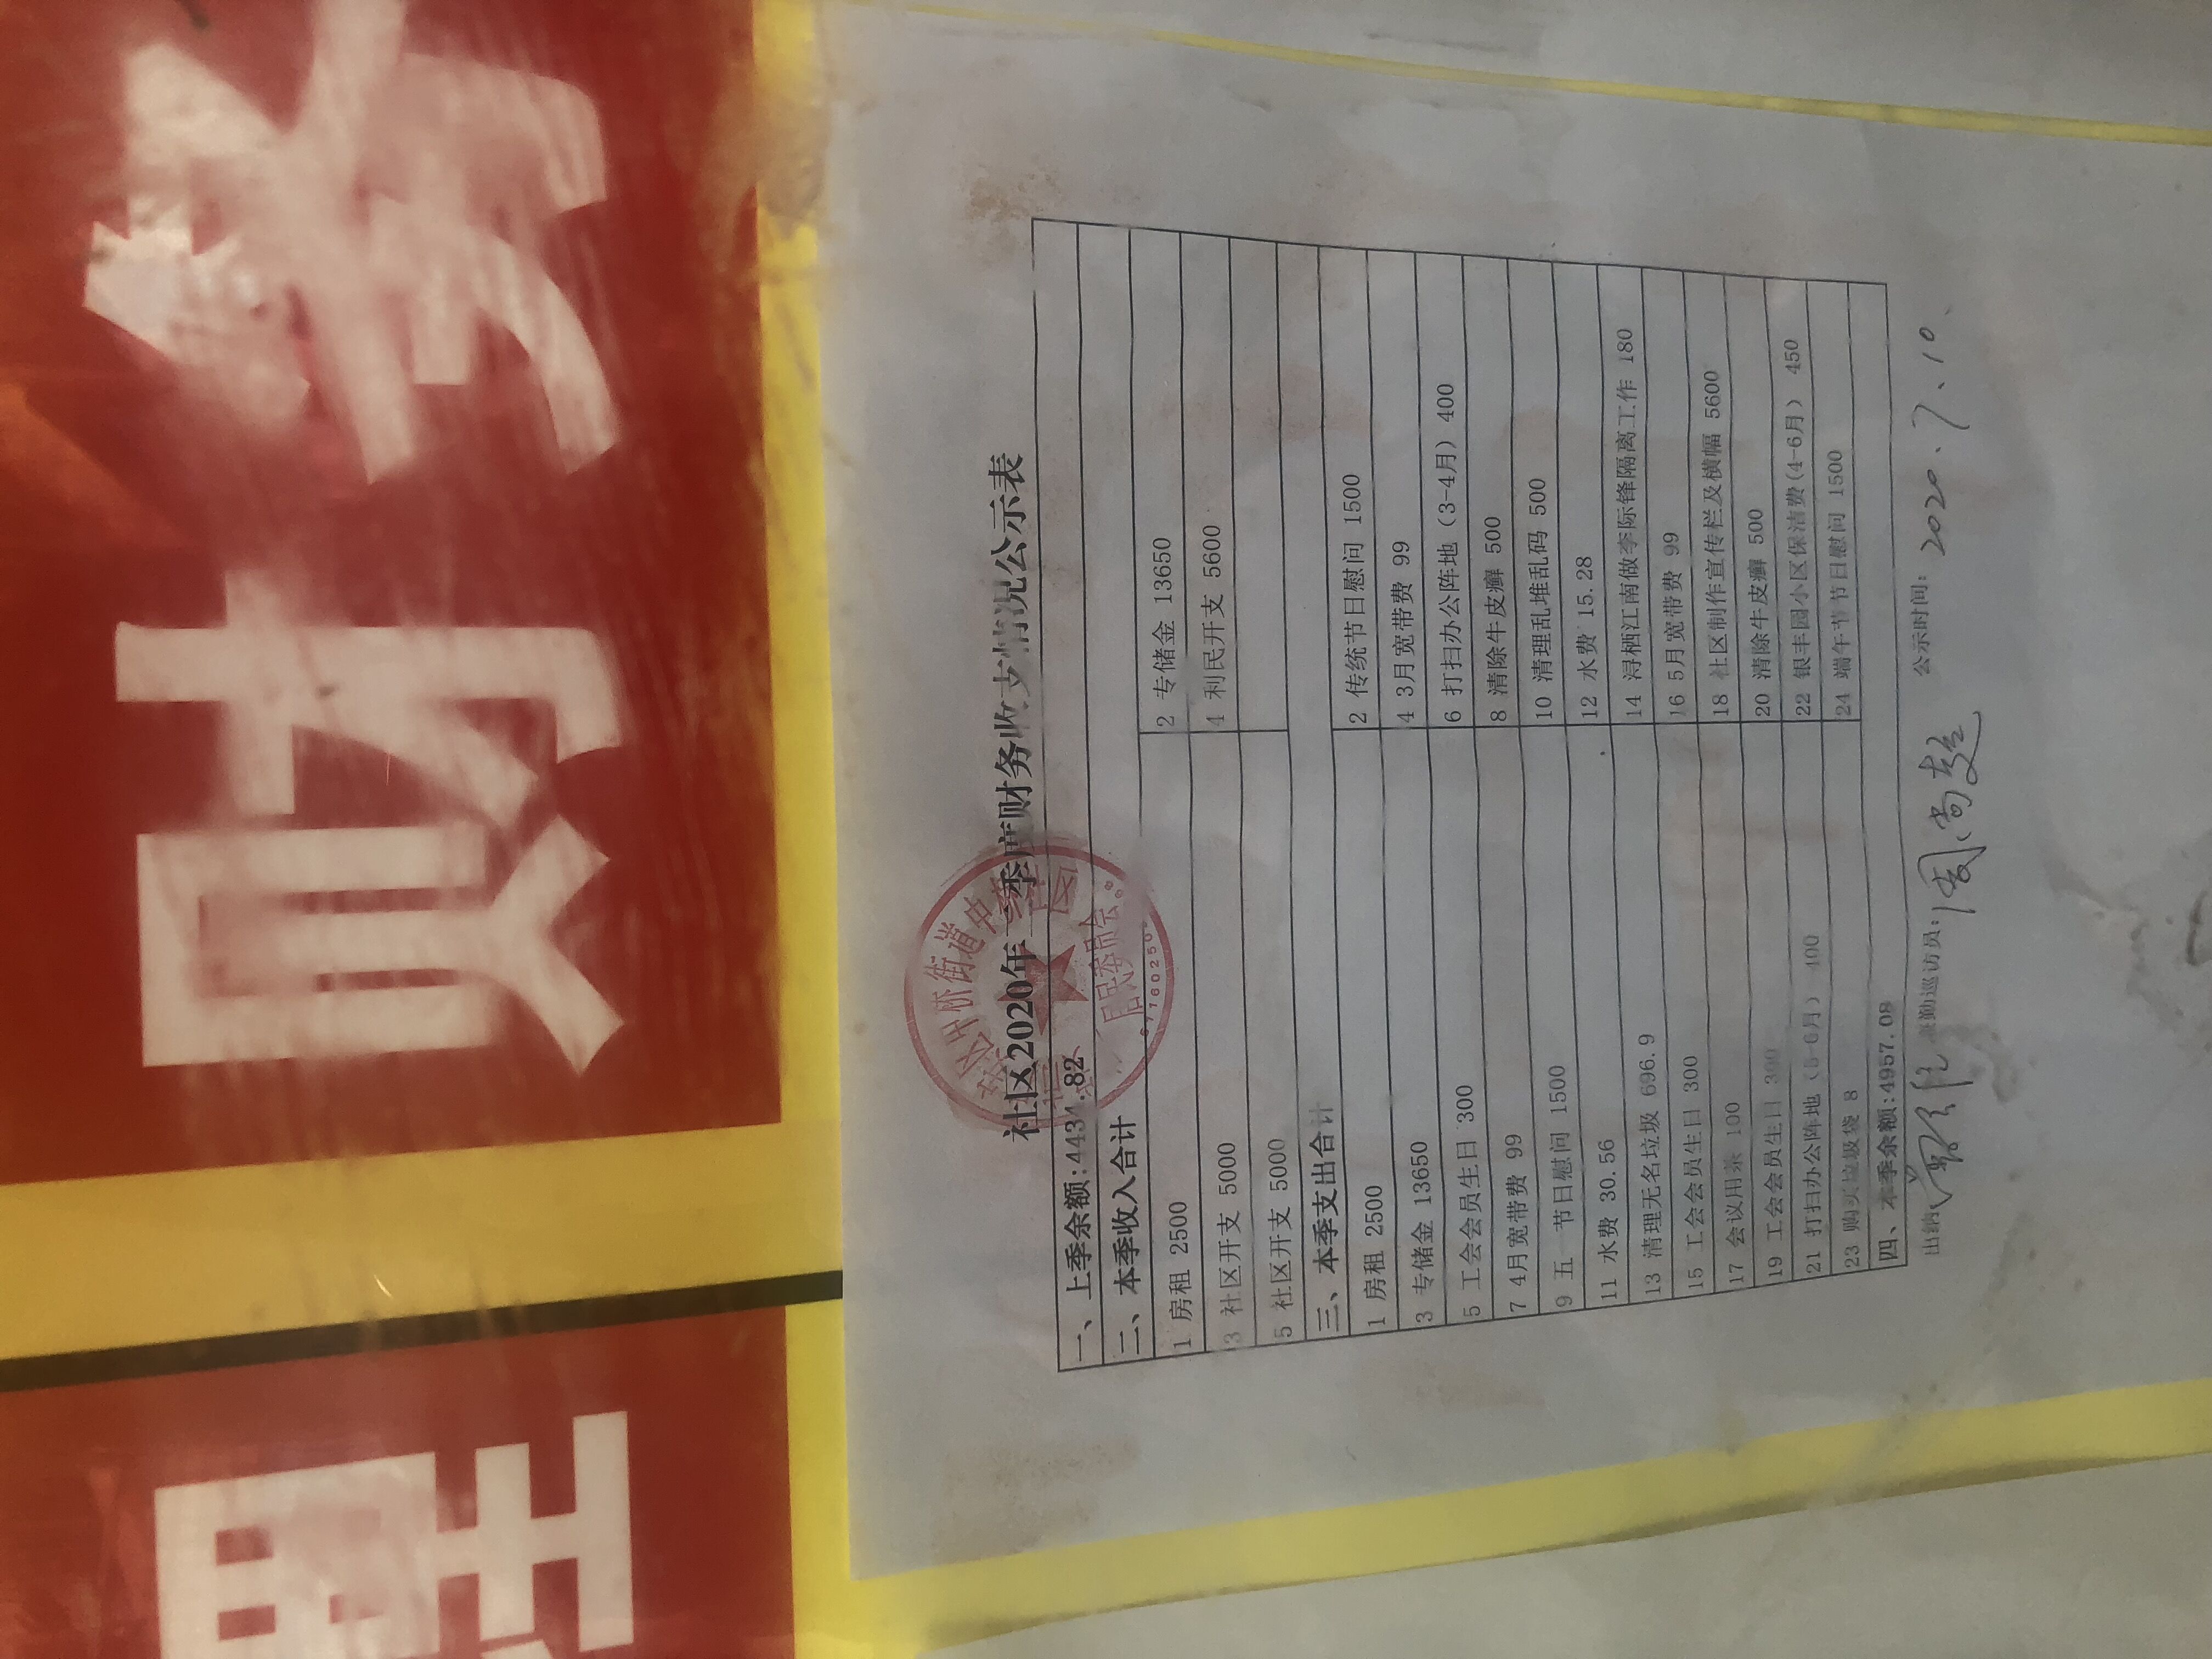 财务
社区2020年二季度财务收支情况公示表
一、上季余额:4434.82
二、本季收入合计
1 房租 2500 2 专储金 13650
3 社区开支 5000 4 利民开支 5600
5 社区开支 5000
三、本季支出合计
1 房租 2500 2 传统节日慰问 1500
3 专储金 13650 4 3月宽带费 99
5 工会会员生日 300 6 打扫办公阵地（3-4月）400
7 4月宽带费 99 8 清除牛皮癣 500
9 五一节日慰问 1500 10 清理乱堆乱码 500
11 水费 30.56 12 水费 15.28
13 清理无名垃圾 696.9 14 浔栖江南做李际锋隔离工作 180
15 工会会员生日 300 16 5月宽带费 99
17 会议用茶 100 18 社区制作宣传栏及横幅 5600
19 工会会员生日 300 20 清除牛皮癣 500
21 打扫办公阵地（5-6月）400 22 银丰园小区保洁费(4-6月） 450
23 购买垃圾袋 8 24 端午节节日慰问 1500
四、本季余额:4957.08
出纳 兼勤巡访员: 周尚 公示时间: 2020.7.10
街道中
居民委员会